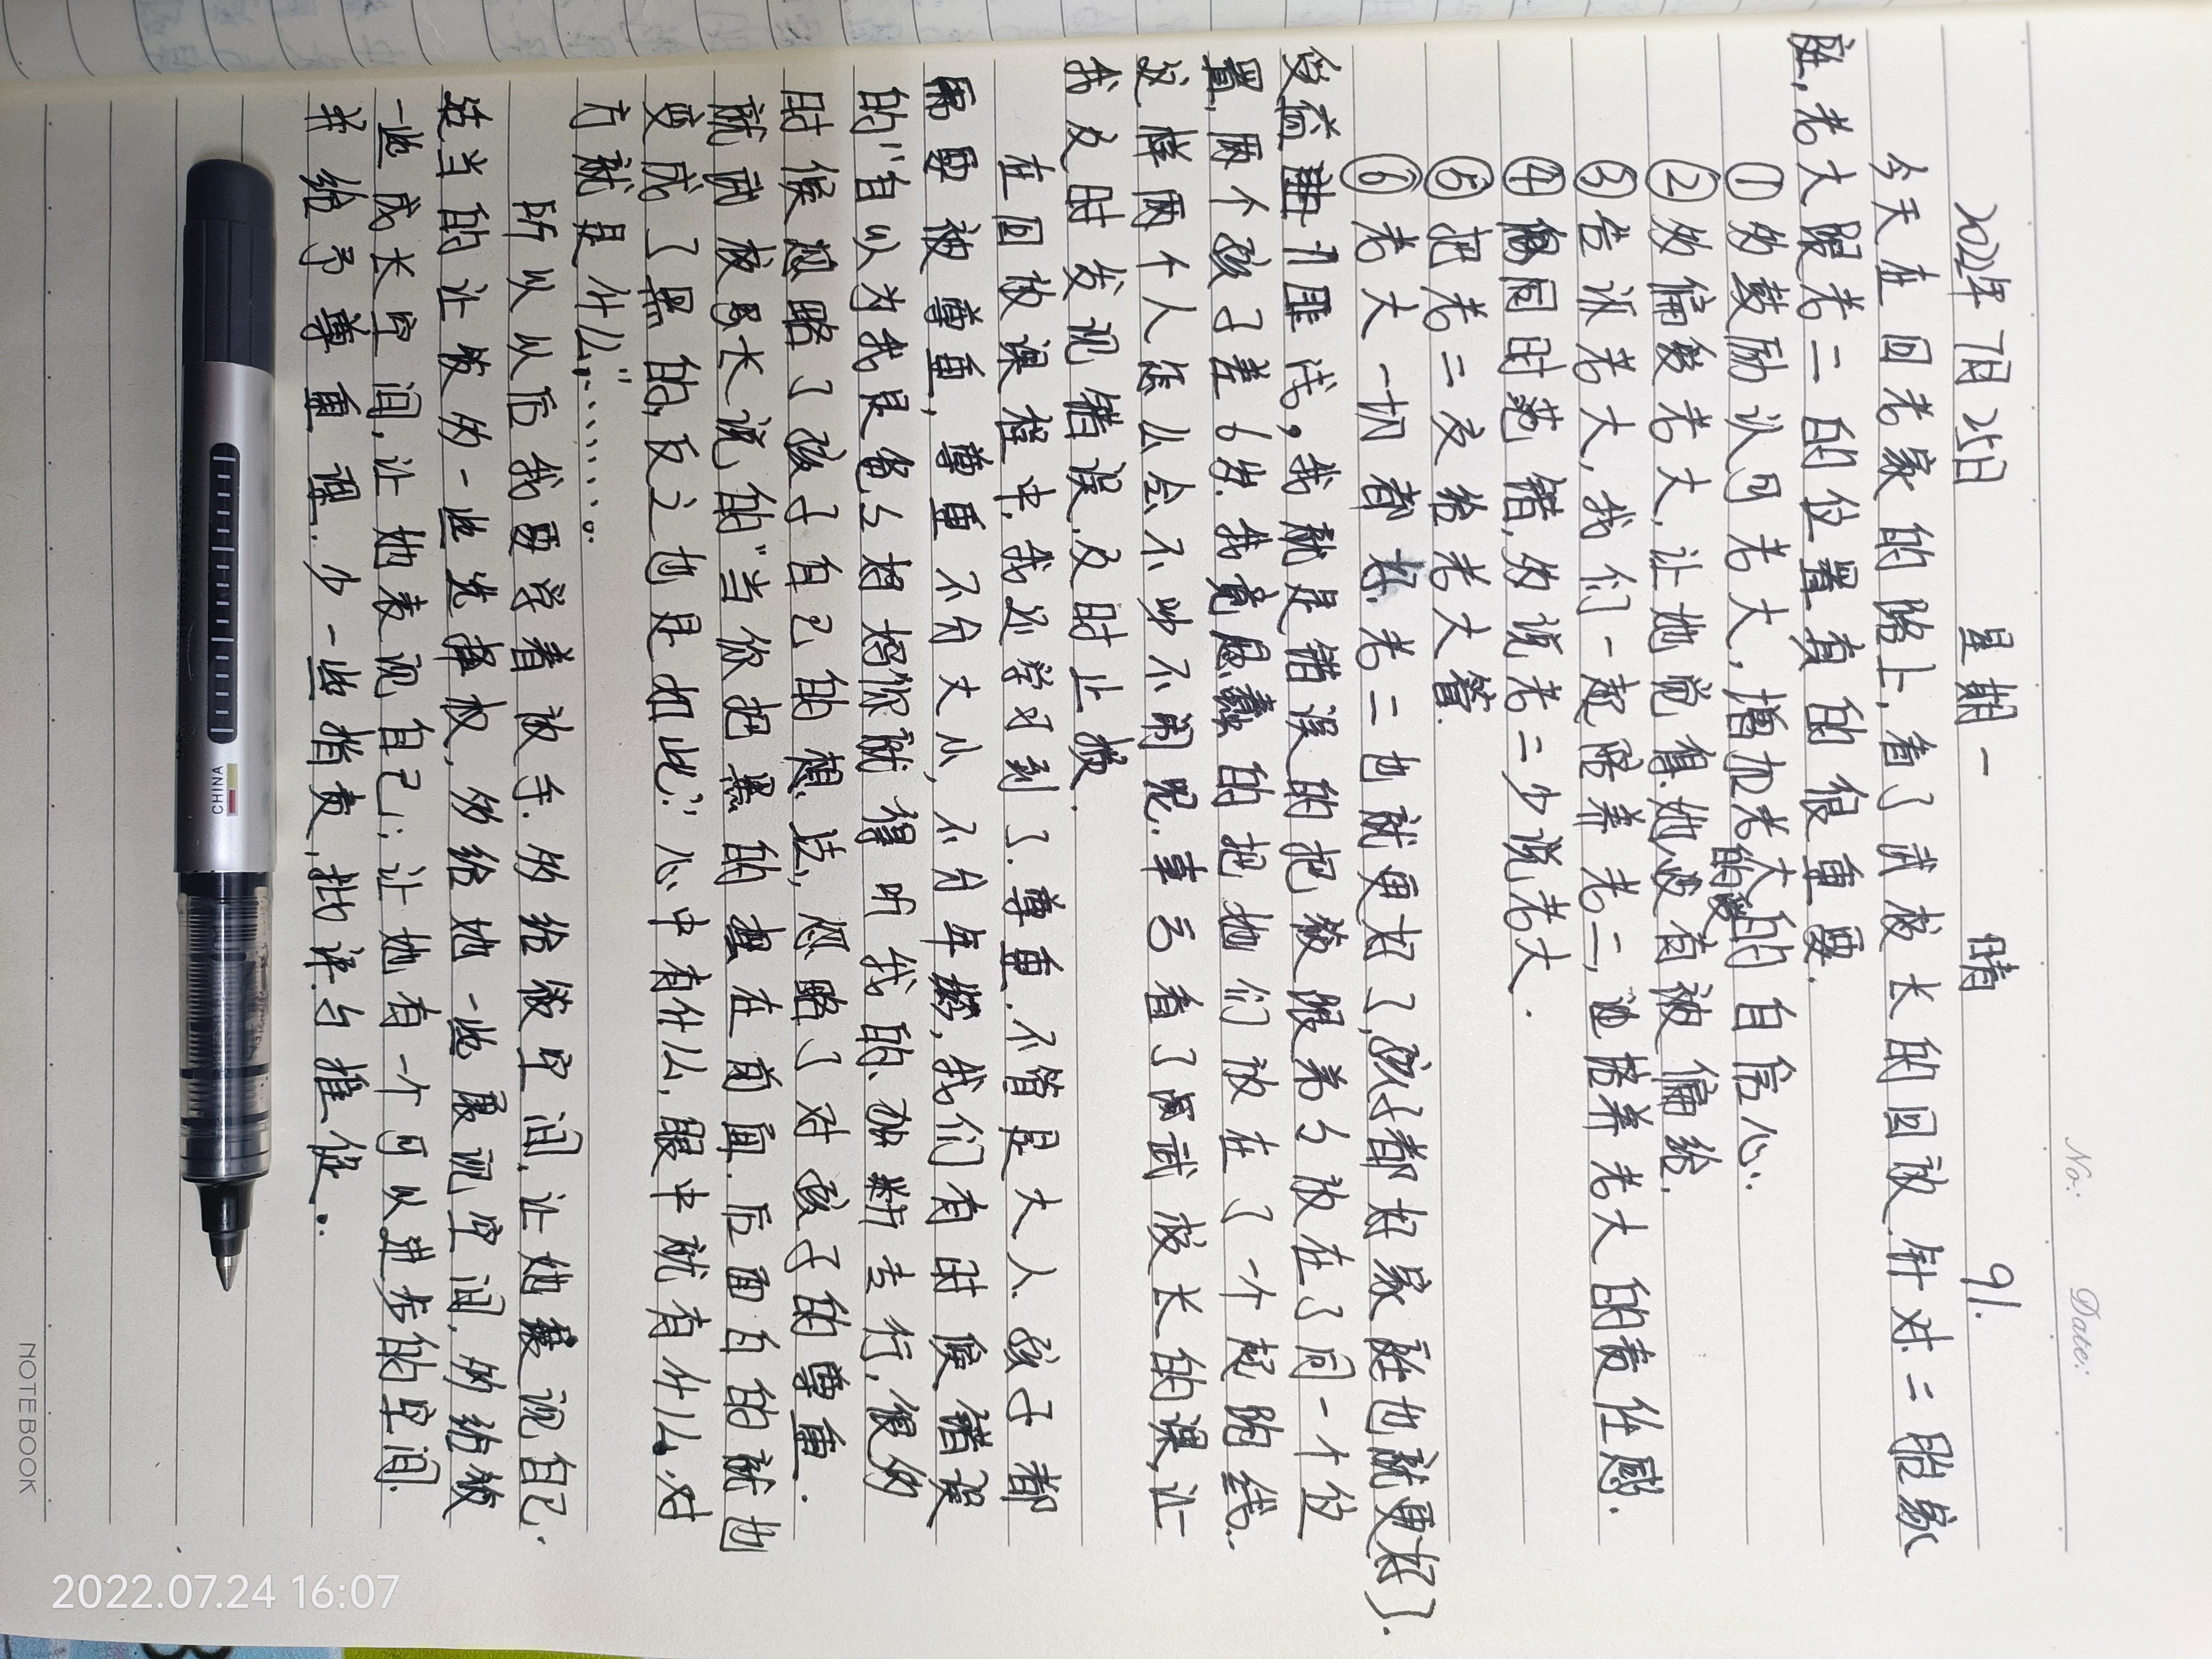 No:
Date:
2022年7月25日 星期一 晴 91.
今天在回老家的路上,看了武校长的回放.针对二胎家
庭,老大跟老二的位置真的很重要.
①多鼓励认可老大,增加老大的自信心.
②多偏爱老大,让她觉得她没有被偏给的爱.
③告诉老大,我们一起陪养老二,也培养老大的责任感.
④俩同时犯错,多说老二少说老大.
⑤把老二交给老大管.
⑥老大一切都好.老二也就更好了,孩子都好家庭也就更好了.
我就是错误的把筱跟弟弟放在了同一个位
置,两个孩子差6岁.我竟愚蠢的把他们放在了一个起跑线.
这样两个人怎么会不吵不闹呢.幸亏看了武校长的课,让
我及时发现错误.及时止损.
在回放课程中,我还学习到了.尊重.不管是大人.孩子都
需要被尊重,尊重不分大小,不分年龄,我们有时候错误
的"自以为我是爸爸妈妈你就得听我的.专行,很多
时候忽略了孩子自己的想法,忽略了对孩子的尊重.
就武校长说的"当你把黑的摆在前面.后面白的就也
变成了黑的,反之也是如此";心中有什么,眼中就有什么.对
方就是什么"………。
所以以后我要学着放手.多给筱空间,让她表现自己.
适当的让筱多一些选择权,多给她一些展现空间,多给筱
一些成长空间,让她表现自己;让她有一个可以进步的空间.
并给予尊重 理.少一些指责,批评.与催促.
CHINA
NOTEBOOK
2022.07.24 16:07